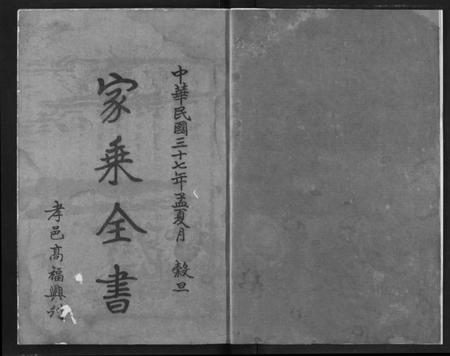 中華民國三十七年孟夏月 穀旦
家乘全書
孝邑高福興